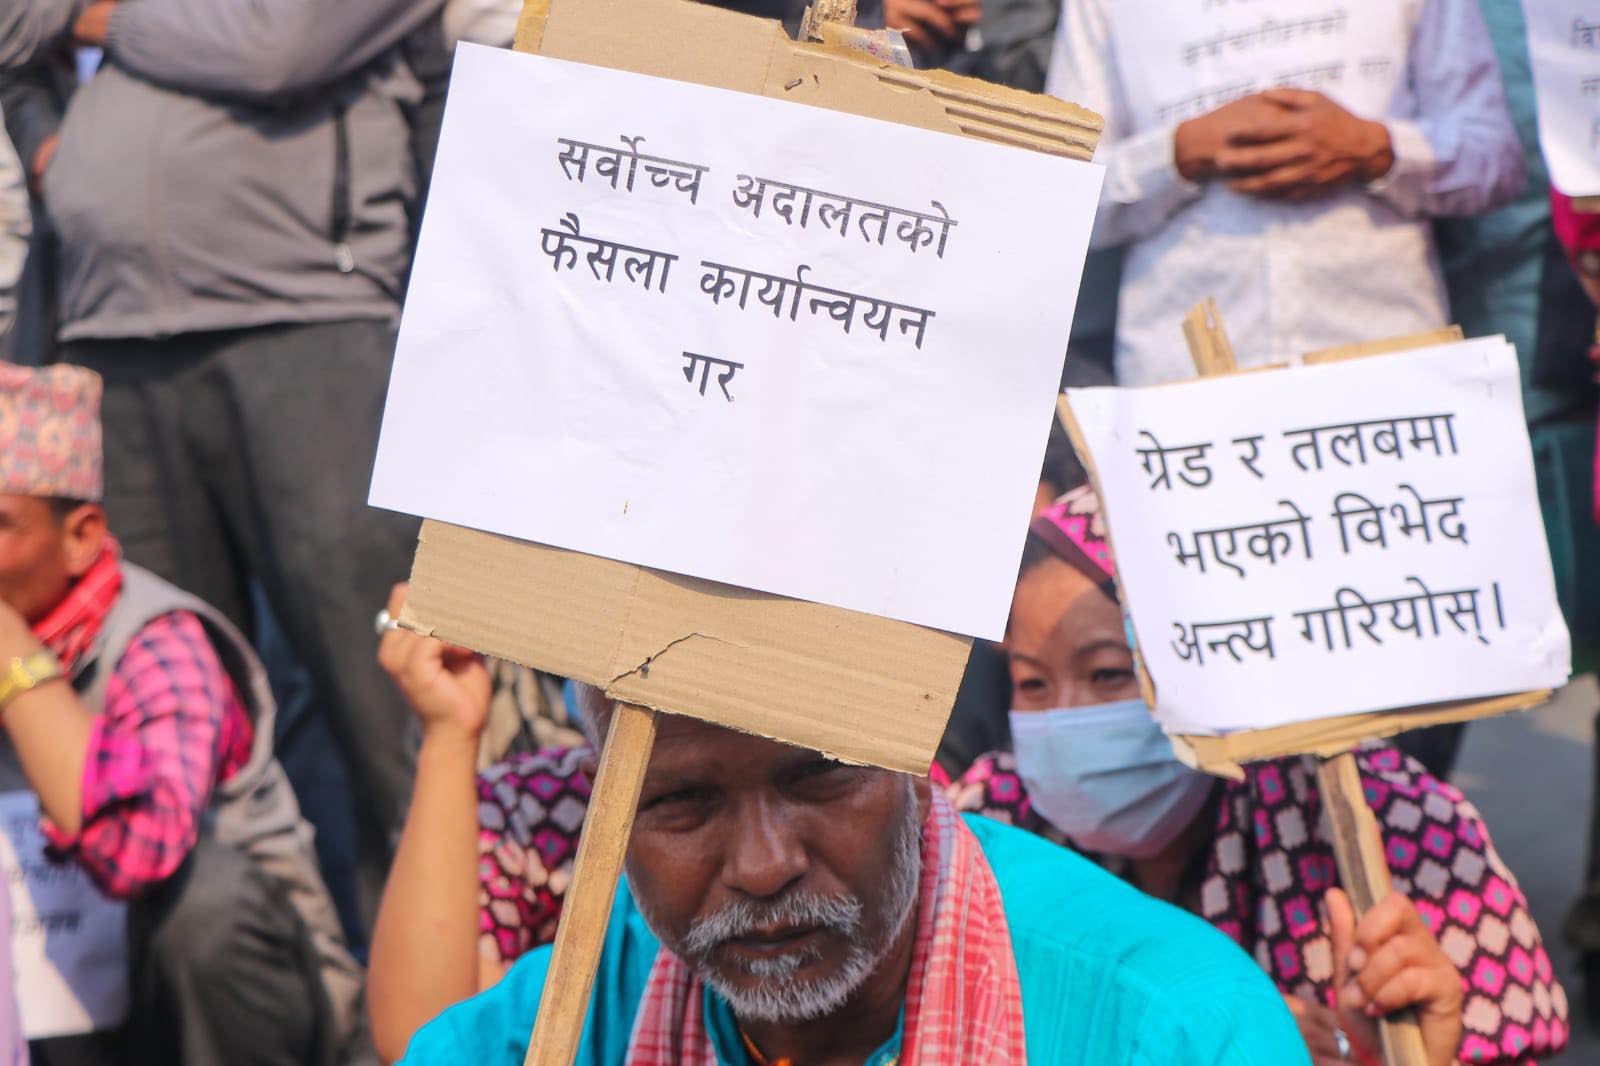 सर्वोच्च अदालतको
फैसला कार्यान्वयन
गर
ग्रेड र तलबमा
भएको विभेद
अन्त्य गरियोस्।